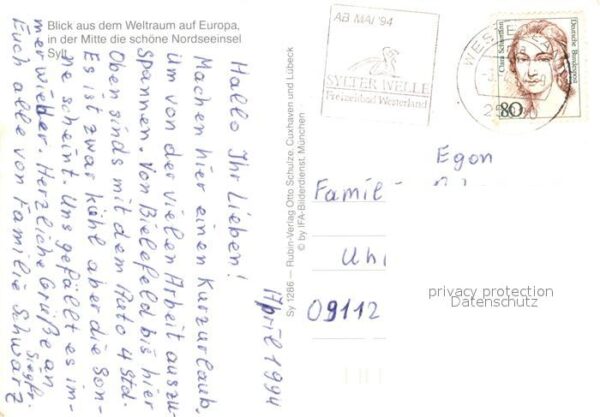 Blick aus dem Weltraum auf Europa,
in der Mitte die schöne Nordseeinsel
Sylt
April 1994
Hallo Ihr Lieben!
Machen hier einen Kurzurlaub.
um von der vielen Arbeit auszu-
spannen. Von Bielefeld bis hier
Oben sinds mit dem Auto 4 Std.
Es ist zwar kühl aber die Son-
ne scheint. Uns gefällt es im-
mer wieder. Herzliche Grüße an
Euch alle von Familie Schwarz
Siegfr.
Sy 1286 — Rubin-Verlag Otto Schulze, Cuxhaven und Lübeck
© by IFA-Bilderdienst, München
AB MAI '94
SYLTER WELLE
Freizeitbad Westerland
WESTE
25
Clara Schumann
Deutsche Bundespost
80
Egon
Famil
Uh
09112
privacy protection
Datenschutz